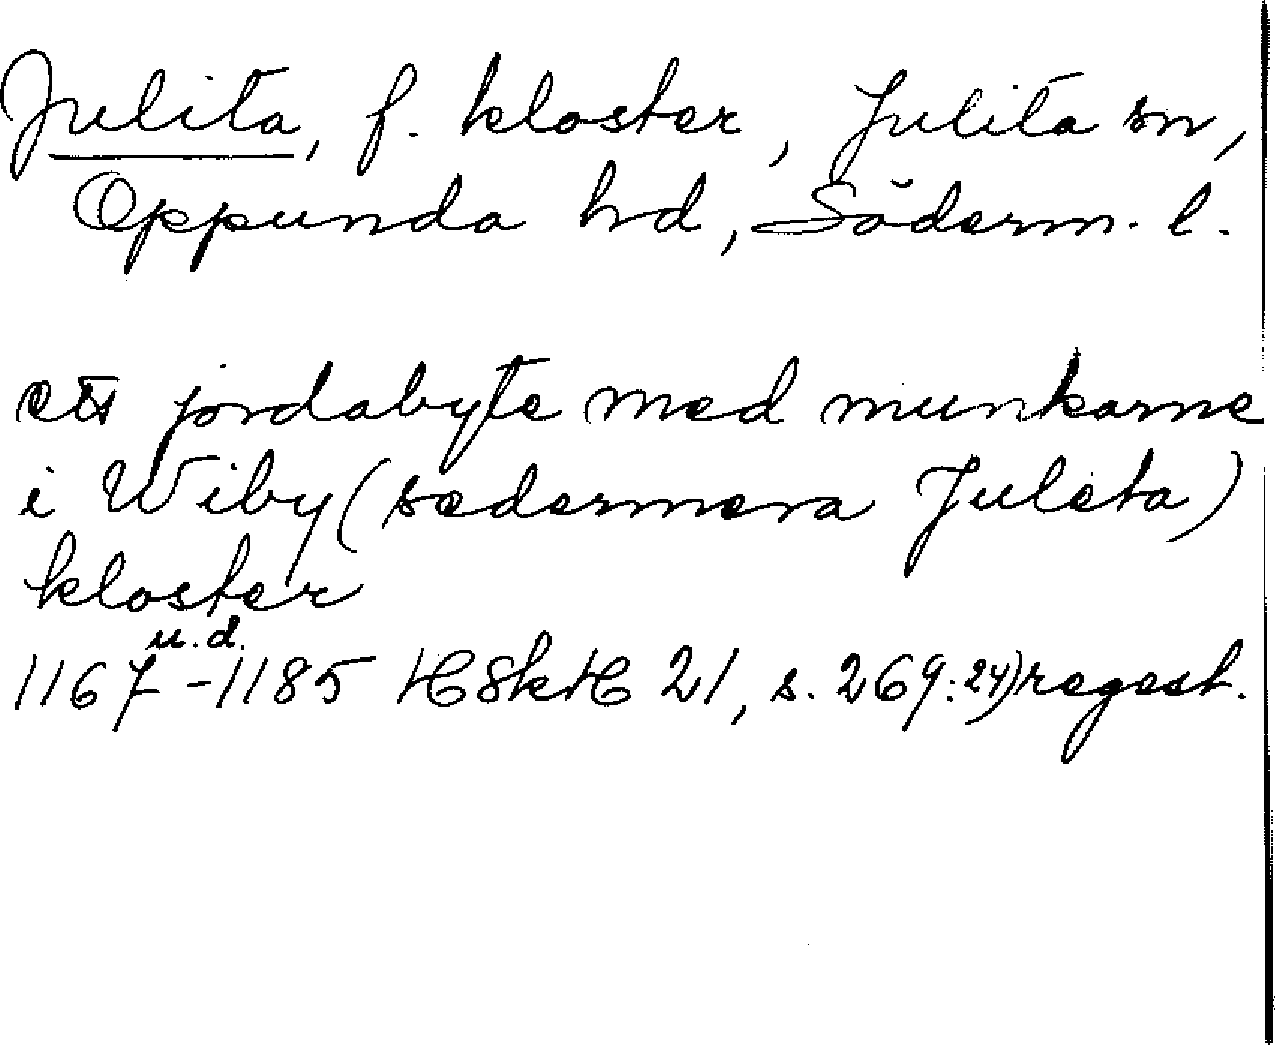 Julita, f. kloster, Julita sn,
Oppunda hd, Söderm. l.
ett jordabyte med munkarne
i Wiby (sedermera Juleta)
kloster
u.d.
1167-1185 HSkH 21, s. 269:24) regest.